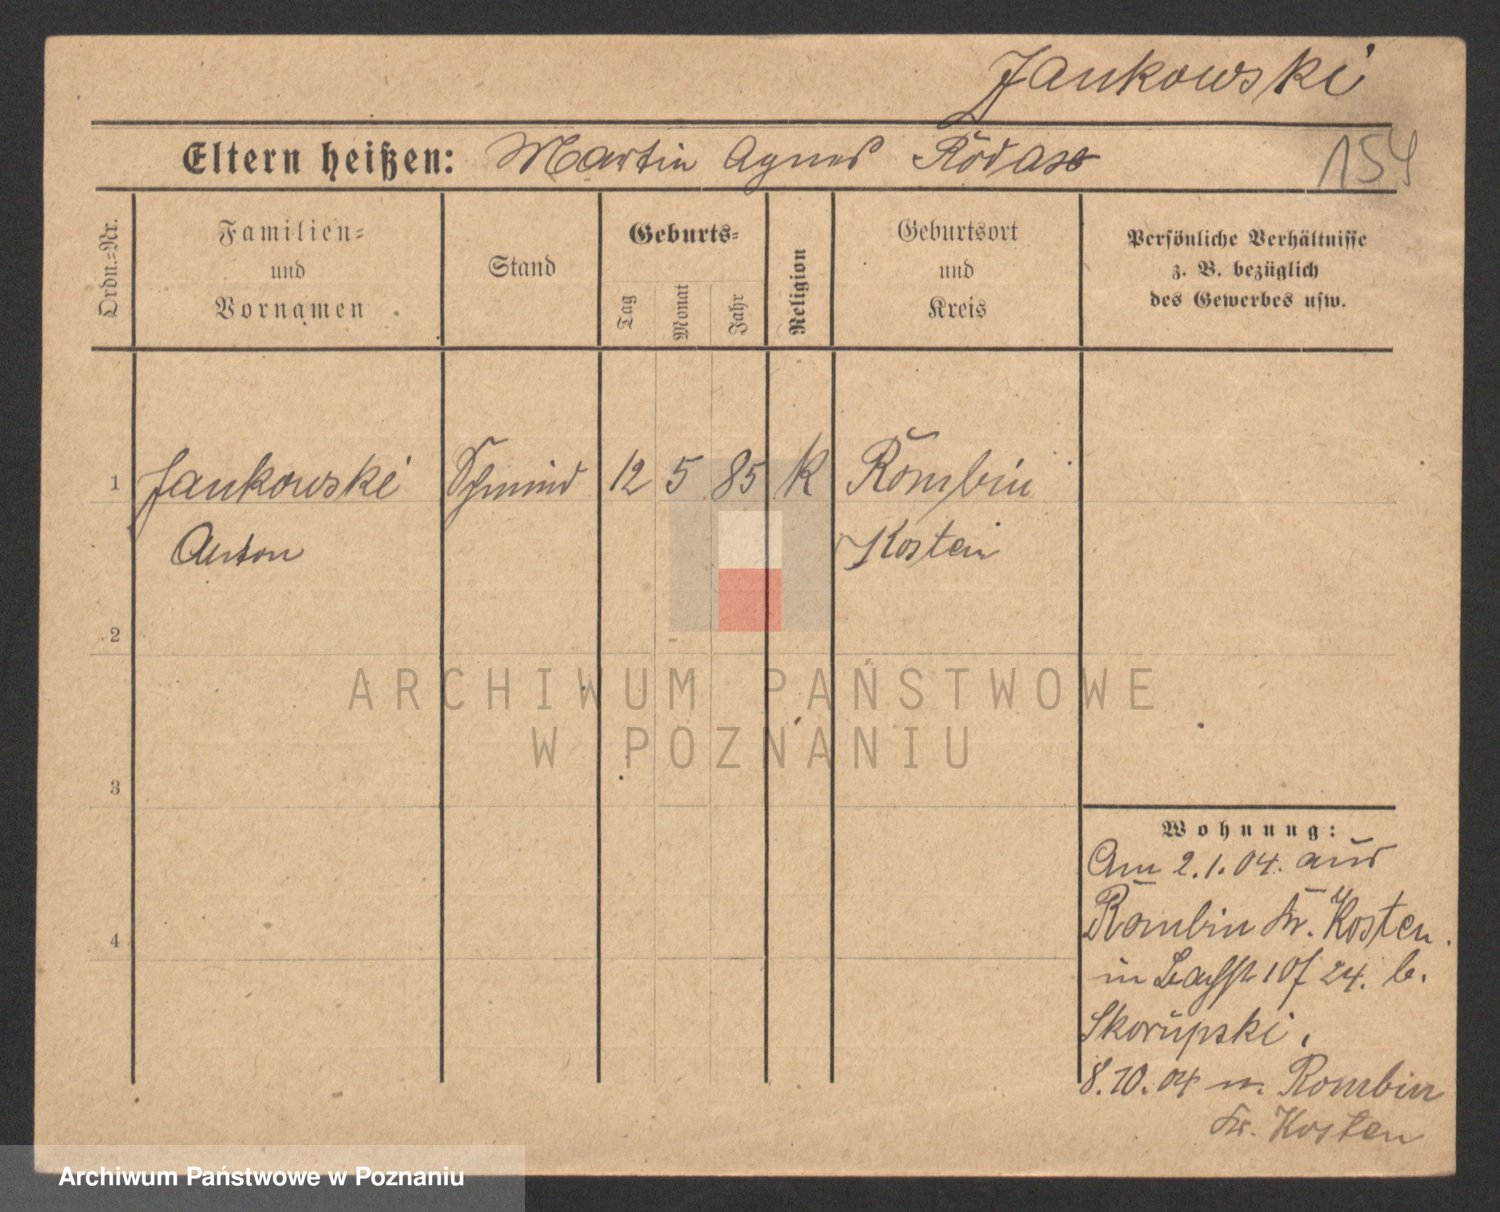 Jankowski
Eltern heißen: Martin Agnes
154
Ordn.-Nr.
Familien-
und
Vornamen
Stand
Geburts-
Tag
Monat
Jahr
Religion
Geburtsort
und
Kreis
Persönliche Verhältnisse
z. B. bezüglich
des Gewerbes usw.
1 Jankowski Schmied 12 5 85 K Rombin
Anton Kosten
2
3
4
Wohnung:
Am 2.1.04. aus
Rombin Kr. Kosten.
in 24. b.
Skorupski.
8.10.04 n. Rombin
Kr. Kosten
ARCHIWUM PAŃSTWOWE
W POZNANIU
Archiwum Państwowe w Poznaniu